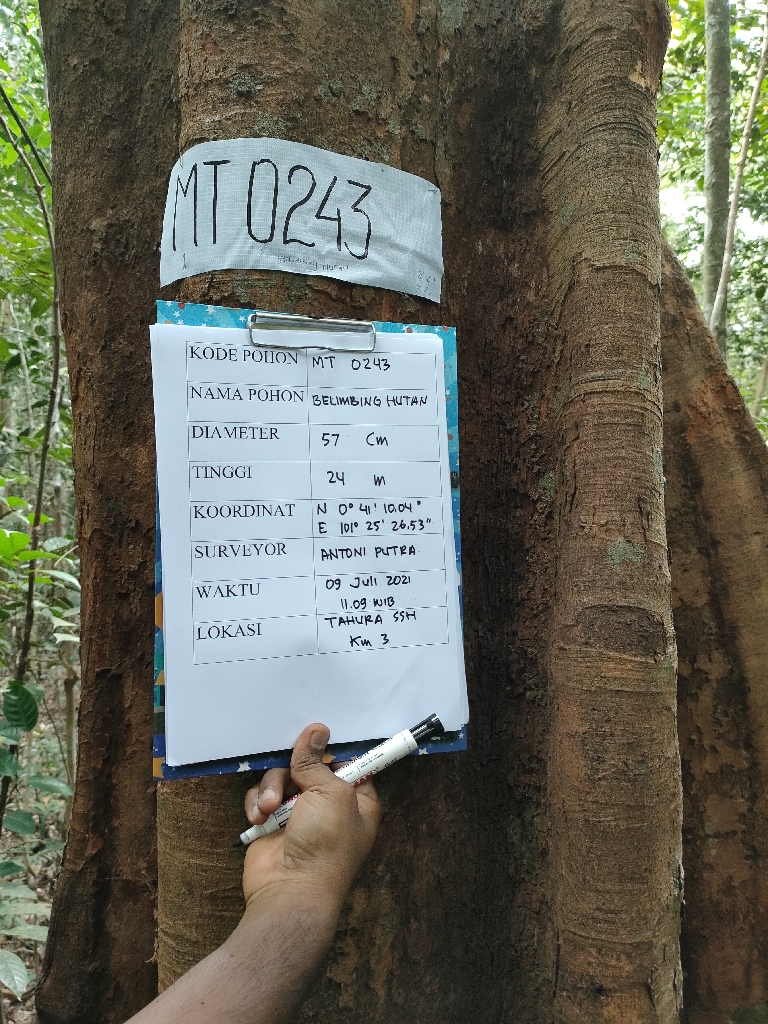 MT 0243
KODE POHON MT 0243
NAMA POHON BELIMBING HUTAN
DIAMETER 57 Cm
TINGGI 24 m
KOORDINAT N 0° 41' 10.04"
E 101° 25' 26.53"
SURVEYOR ANTONI PUTRA
WAKTU 09 Juli 2021
11.09 WIB
LOKASI TAHURA SSH
Km 3